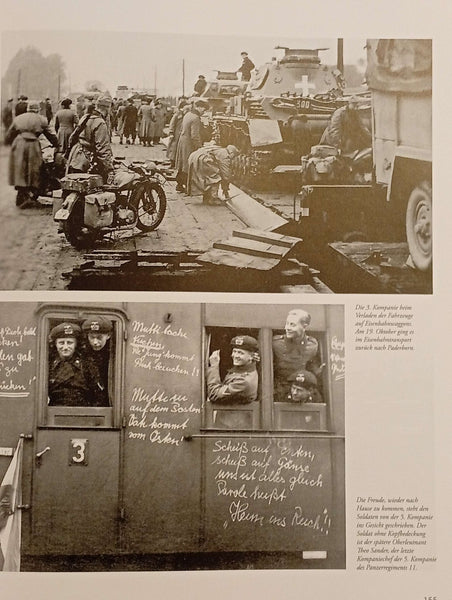 300
Die 3. Kompanie beim
Verladen der Fahrzeuge
auf Eisenbahnwaggons.
Am 19. Oktober ging es
im Eisenbahntransport
zurück nach Paderborn.
3
Mutti backe
Kuchen
kommt
Mutti sei
auf dem Posten
Vati kommt
vom Osten!
Scheiß auf Enten,
scheiß auf Gänse
und ist alles gleich
Parole heißt
„Heim ins Reich"!!
Die Freude, wieder nach
Hause zu kommen, steht den
Soldaten von der 5. Kompanie
ins Gesicht geschrieben. Der
Soldat ohne Kopfbedeckung
ist der spätere Oberleutnant
Theo Sander, der letzte
Kompaniechef der 5. Kompanie
des Panzerregiments 11.